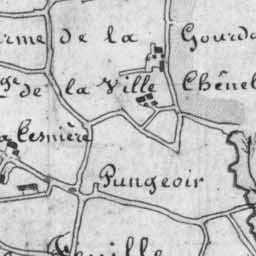 erme de la Gourda
ge de la Ville Chênel
a Cesnière
Pungeoir
euille